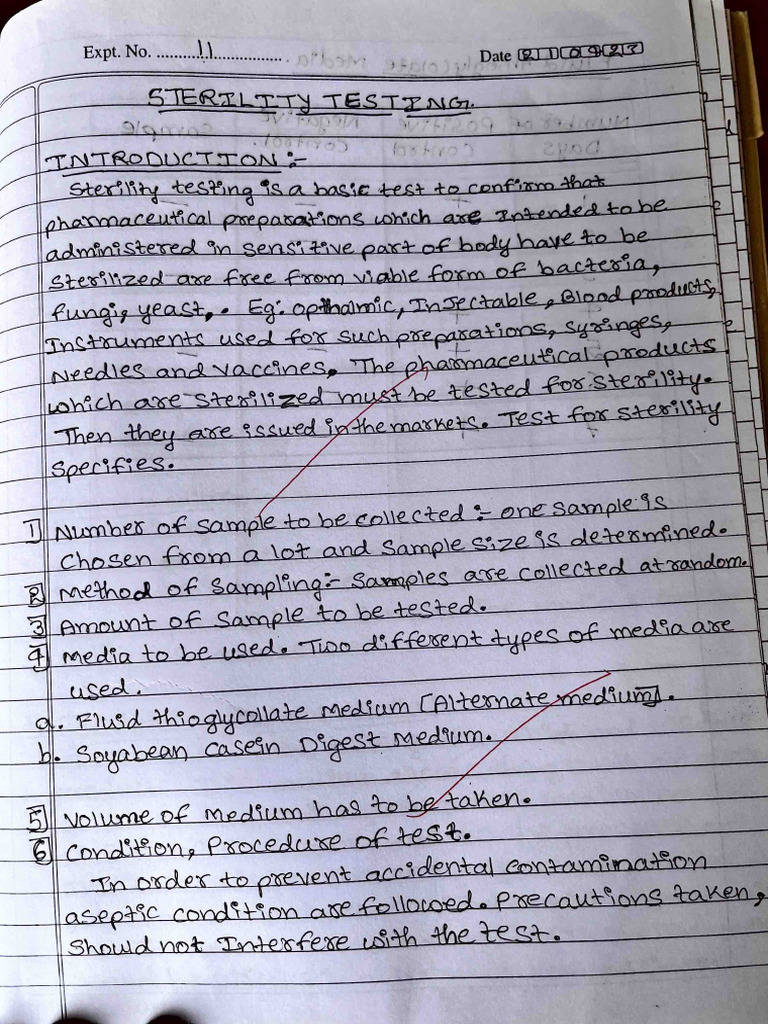 Expt. No. 11
Date 210923
STERILITY TESTING.
INTRODUCTION :-
Sterility testing is a basic test to confirm that
pharmaceutical preparations which are Intended to be
administered in sensitive part of body have to be
sterilized are free from viable form of bacteria,
fungi, yeast,. Eg: opthalmic, Injectable, Blood products,
Instruments used for such preparations, syringes,
Needles and vaccines. The pharmaceutical products
which are sterilized must be tested for sterility.
Then they are issued in the markets. Test for sterility
specifies.
1 Number of sample to be collected :- one sample is
chosen from a lot and sample size is determined.
2 Method of sampling:- samples are collected at random.
3 Amount of sample to be tested.
4 Media to be used. Two different types of media are
used.
a. Fluid thioglycollate medium [Alternate medium].
b. Soyabean casein Digest Medium.
5 Volume of medium has to be taken.
6 Condition, Procedure of test.
In order to prevent accidental contamination
aseptic condition are followed. Precautions taken,
Should not Interfere with the test.